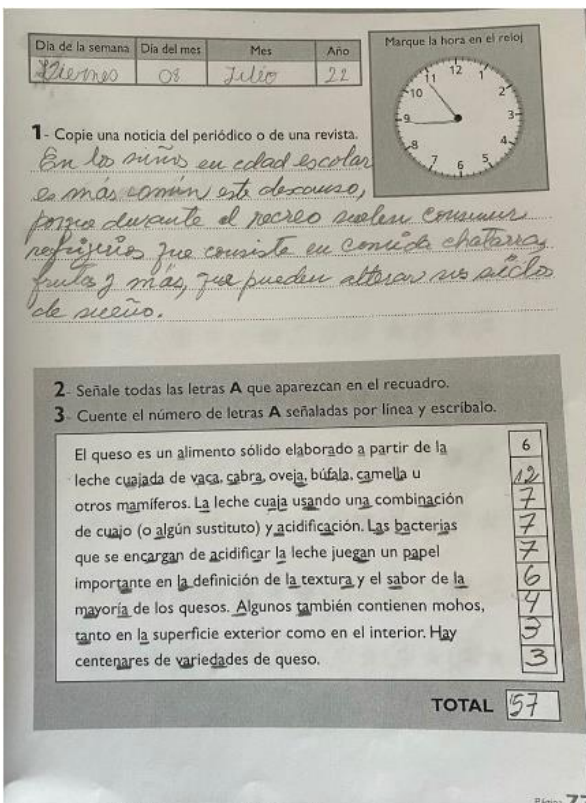 Día de la semana Día del mes Mes Año
Viernes 08 Julio 22
Marque la hora en el reloj
12
1
2
3
4
5
6
7
8
9
10
11
1- Copie una noticia del periódico o de una revista.
En los niños en edad escolar
es más común este descanso,
porque durante el recreo suelen consumir
refrigerios que consiste en comida chatarra,
frutas y más, que pueden alterar sus siclos
de sueño.
2- Señale todas las letras A que aparezcan en el recuadro.
3- Cuente el número de letras A señaladas por línea y escríbalo.
El queso es un alimento sólido elaborado a partir de la 6
leche cuajada de vaca, cabra, oveja, búfala, camella u 12
otros mamíferos. La leche cuaja usando una combinación 7
de cuajo (o algún sustituto) y acidificación. Las bacterias 7
que se encargan de acidificar la leche juegan un papel 7
importante en la definición de la textura y el sabor de la 6
mayoría de los quesos. Algunos también contienen mohos, 4
tanto en la superficie exterior como en el interior. Hay 3
centenares de variedades de queso. 3
TOTAL 57